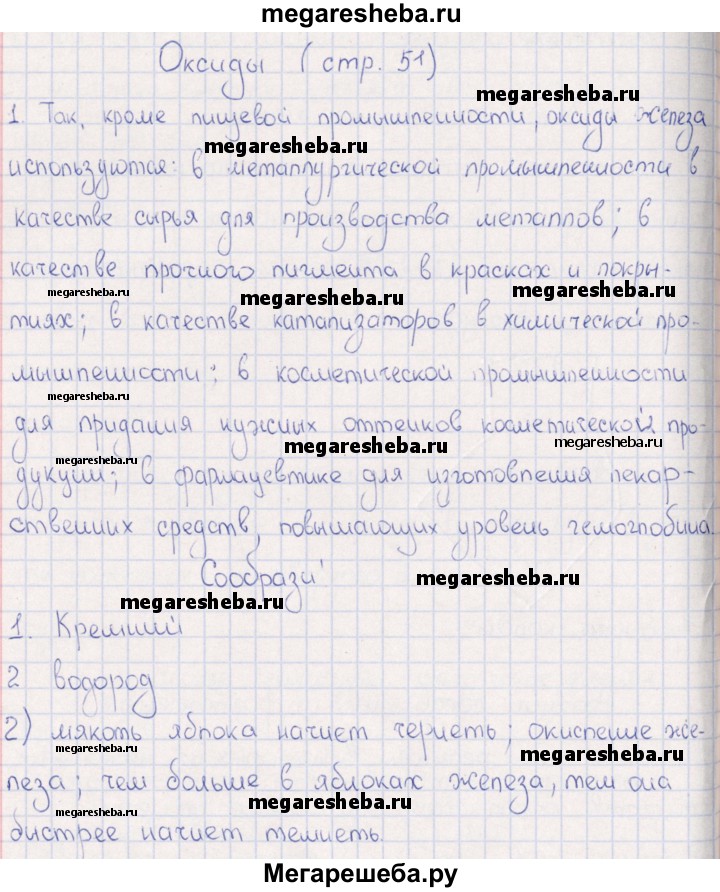 megaresheba.ru
Оксиды (стр. 51)
megaresheba.ru
1. Так, кроме пищевой промышленности, оксиды железа
megaresheba.ru
используются: в металлургической промышленности в
качестве сырья для производства металлов; в
качестве прочного пигмента в красках и покры-
megaresheba.ru megaresheba.ru megaresheba.ru
тиях; в качестве катализаторов в химической про-
мышленности; в косметической промышленности
megaresheba.ru
для придания нужных оттенков косметической про-
megaresheba.ru megaresheba.ru megaresheba.ru
дукции; в фармацевтике для изготовления лекар-
ственних средств, повышающих уровень гемоглобина.
Сообрази!
megaresheba.ru
megaresheba.ru
1. Кремний
2 водород
2) мякоть яблока начнет чернеть; окисление же-
megaresheba.ru megaresheba.ru
леза; чем больше в яблоках железа, тем она
megaresheba.ru megaresheba.ru
быстрее начнет темнеть.
Мегарешеба.ру